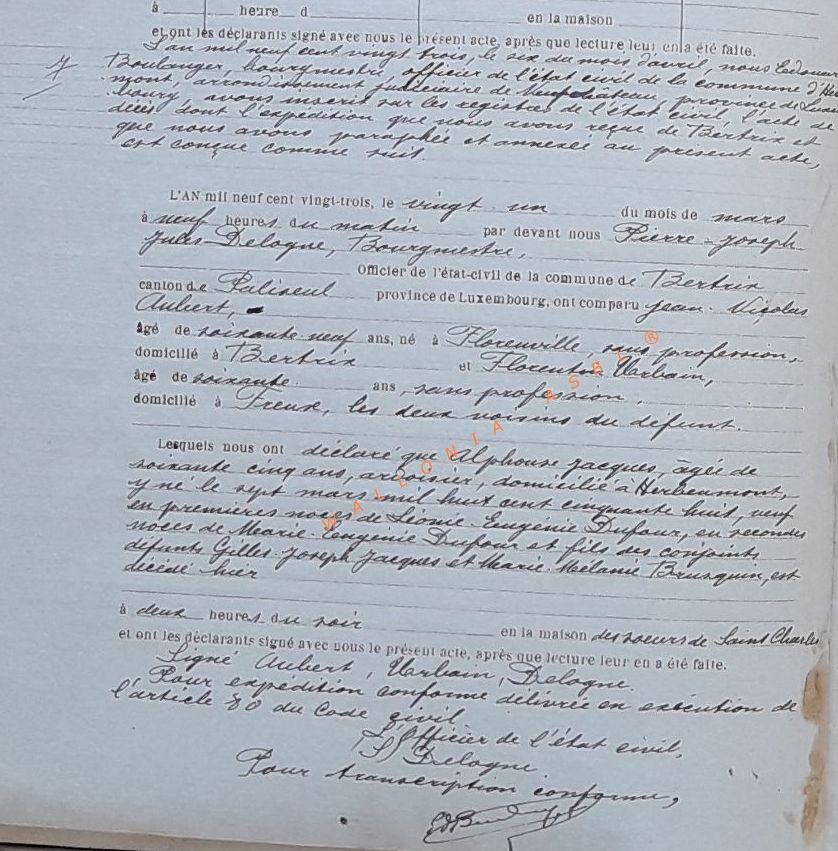 à heure d en la maison
et ont les déclarants signé avec nous le présent acte, après que lecture leur en a été faite.
7
L'an mil neuf cent vingt trois, le six du mois d'avril, nous Edouard
Boulanger, bourgmestre, officier de l'état civil de la commune d'Her
mont, arrondissement judiciaire de Neufchâteau, province de Luxem
bourg, avons inscrit sur les registres de l'état civil, l'acte de
décès dont l'expédition que nous avons reçue de Bertrix et
que nous avons paraphée et annexée au présent acte,
est conçue comme suit.
L'AN mil neuf cent vingt-trois, le vingt un du mois de mars
à neuf heures du matin par devant nous Pierre-Joseph
Jules Delogne, Bourgmestre,
Officier de l'état-civil de la commune de Bertrix
canton de Paliseul province de Luxembourg, ont comparu Jean-Nicolas
Aubert,
âgé de soixante neuf ans, né à Florenville, sans profession,
domicilié à Bertrix et Florentin Urbain,
âgé de soixante ans, sans profession,
domicilié à Freux, les deux voisins du défunt.
Lesquels nous ont déclaré que Alphonse Jacques, âgée de
soixante cinq ans, ardoisier, domicilié à Herbeumont,
y né le sept mars mil huit cent cinquante huit, veuf
en premières noces de Léonie-Eugénie Dufour, en secondes
noces de Marie-Eugénie Dufour et fils des conjoints
défunts Gilles-Joseph Jacques et Marie-Mélanie Brusquin, est
décédé hier
à deux heures du soir en la maison des soeurs de Saint Charles
et ont les déclarants signé avec nous le présent acte, après que lecture leur en a été faite.
Signé Aubert, Urbain, Delogne.
Pour expédition conforme délivrée en exécution de
l'article 80 du Code civil
L'Officier de l'état civil,
(S) Delogne
Pour transcription conforme,
WALLONIA ASBL ®